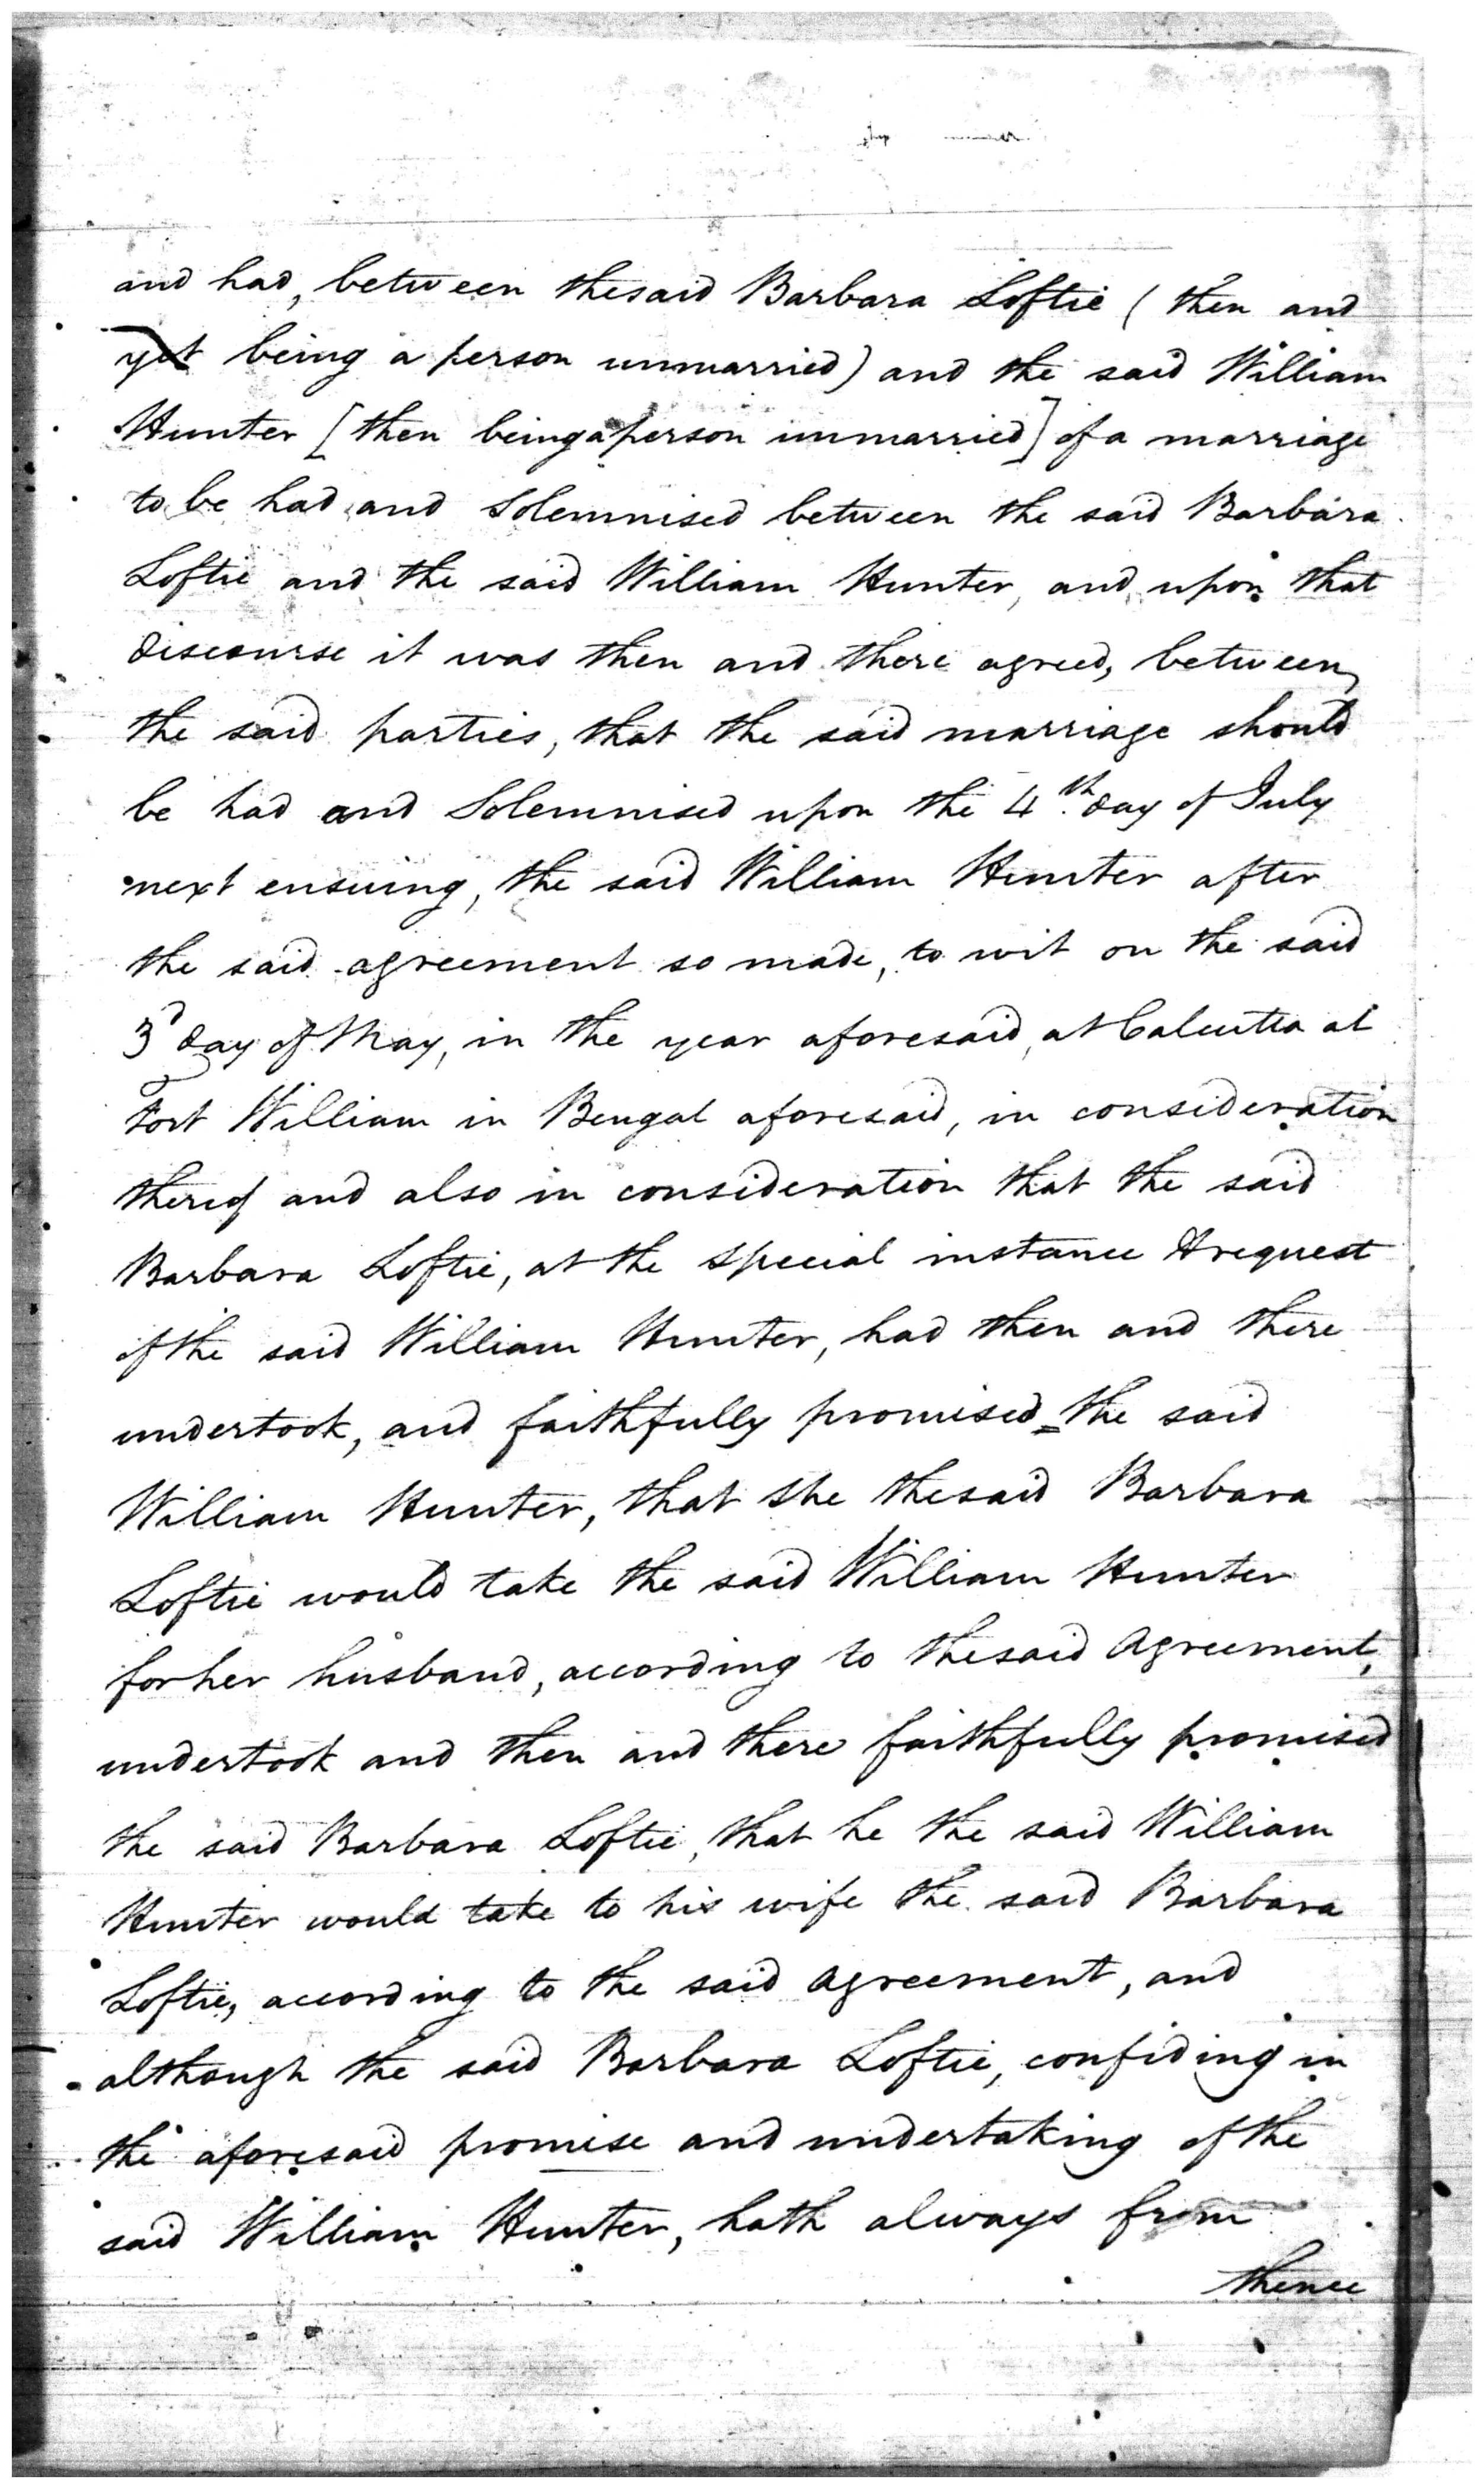 and had, between thesaid Barbara Loftie ( then and
yet being a person unmarried) and the said William
Hunter [then being a person unmarried] of a marriage
to be had and Solemnised between the said Barbara
Loftie and the said William Hunter, and upon that
discourse it was then and there agreed, between,
the said parties, that the said marriage should
be had and Solemnised upon the 4th. day of July
next ensuing, the said William Hunter after
the said agreement so made, to wit on the said
3d day of May, in the year aforesaid, at Calcutta at
Fort William in Bengal aforesaid, in consideration
thereof and also in consideration that the said
Barbara Loftie, at the special instance & request
of the said William Hunter, had then and there
undertook, and faithfully promised the said
William Hunter, that she thesaid Barbara
Loftie would take the said William Hunter
for her husband, according to thesaid Agreement,
undertook and then and there faithfully promised
the said Barbara Loftie, that he the said William
Hunter would take to his wife the said Barbara
Loftie, according to the said Agreement, and
although the said Barbara Loftie, confiding in
the aforesaid promise and undertaking of the
said William Hunter, hath always from
thence